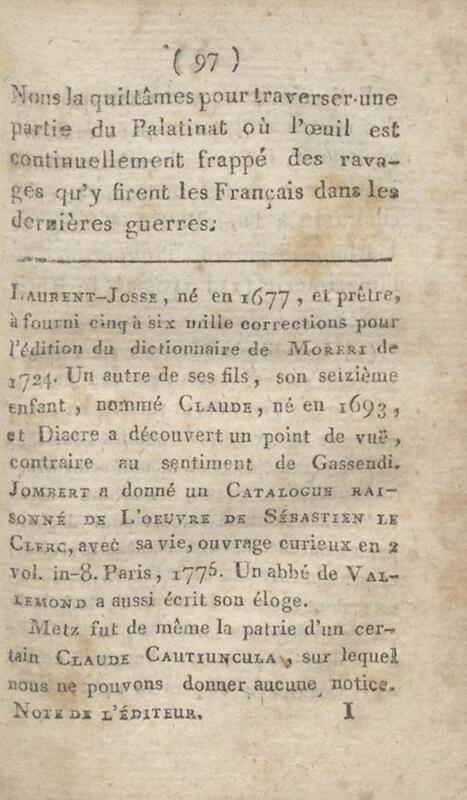 ( 97 )
Nous la quittâmes pour traverser une
partie du Palatinat où l'œuil est
continuellement frappé des rava-
ges qu'y firent les Français dans les
dernières guerres.
LAURENT-JOSSE, né en 1677, et prêtre,
à fourni cinq à six mille corrections pour
l'édition du dictionnaire de MORERI de
1724. Un autre de ses fils, son seizième
enfant, nommé CLAUDE, né en 1693,
et Diacre a découvert un point de vuë,
contraire au sentiment de Gassendi.
JOMBERT a donné un CATALOGUE RAI-
SONNÉ DE L'OEUVRE DE SÉBASTIEN LE
CLERC, avec sa vie, ouvrage curieux en 2
vol. in-8. Paris, 1775. Un abbé de VAL-
LEMOND a aussi écrit son éloge.
Metz fut de même la patrie d'un cer-
tain CLAUDE CAUTIUNCULA, sur lequel
nous ne pouvons donner aucune notice.
NOTE DE L'ÉDITEUR. I